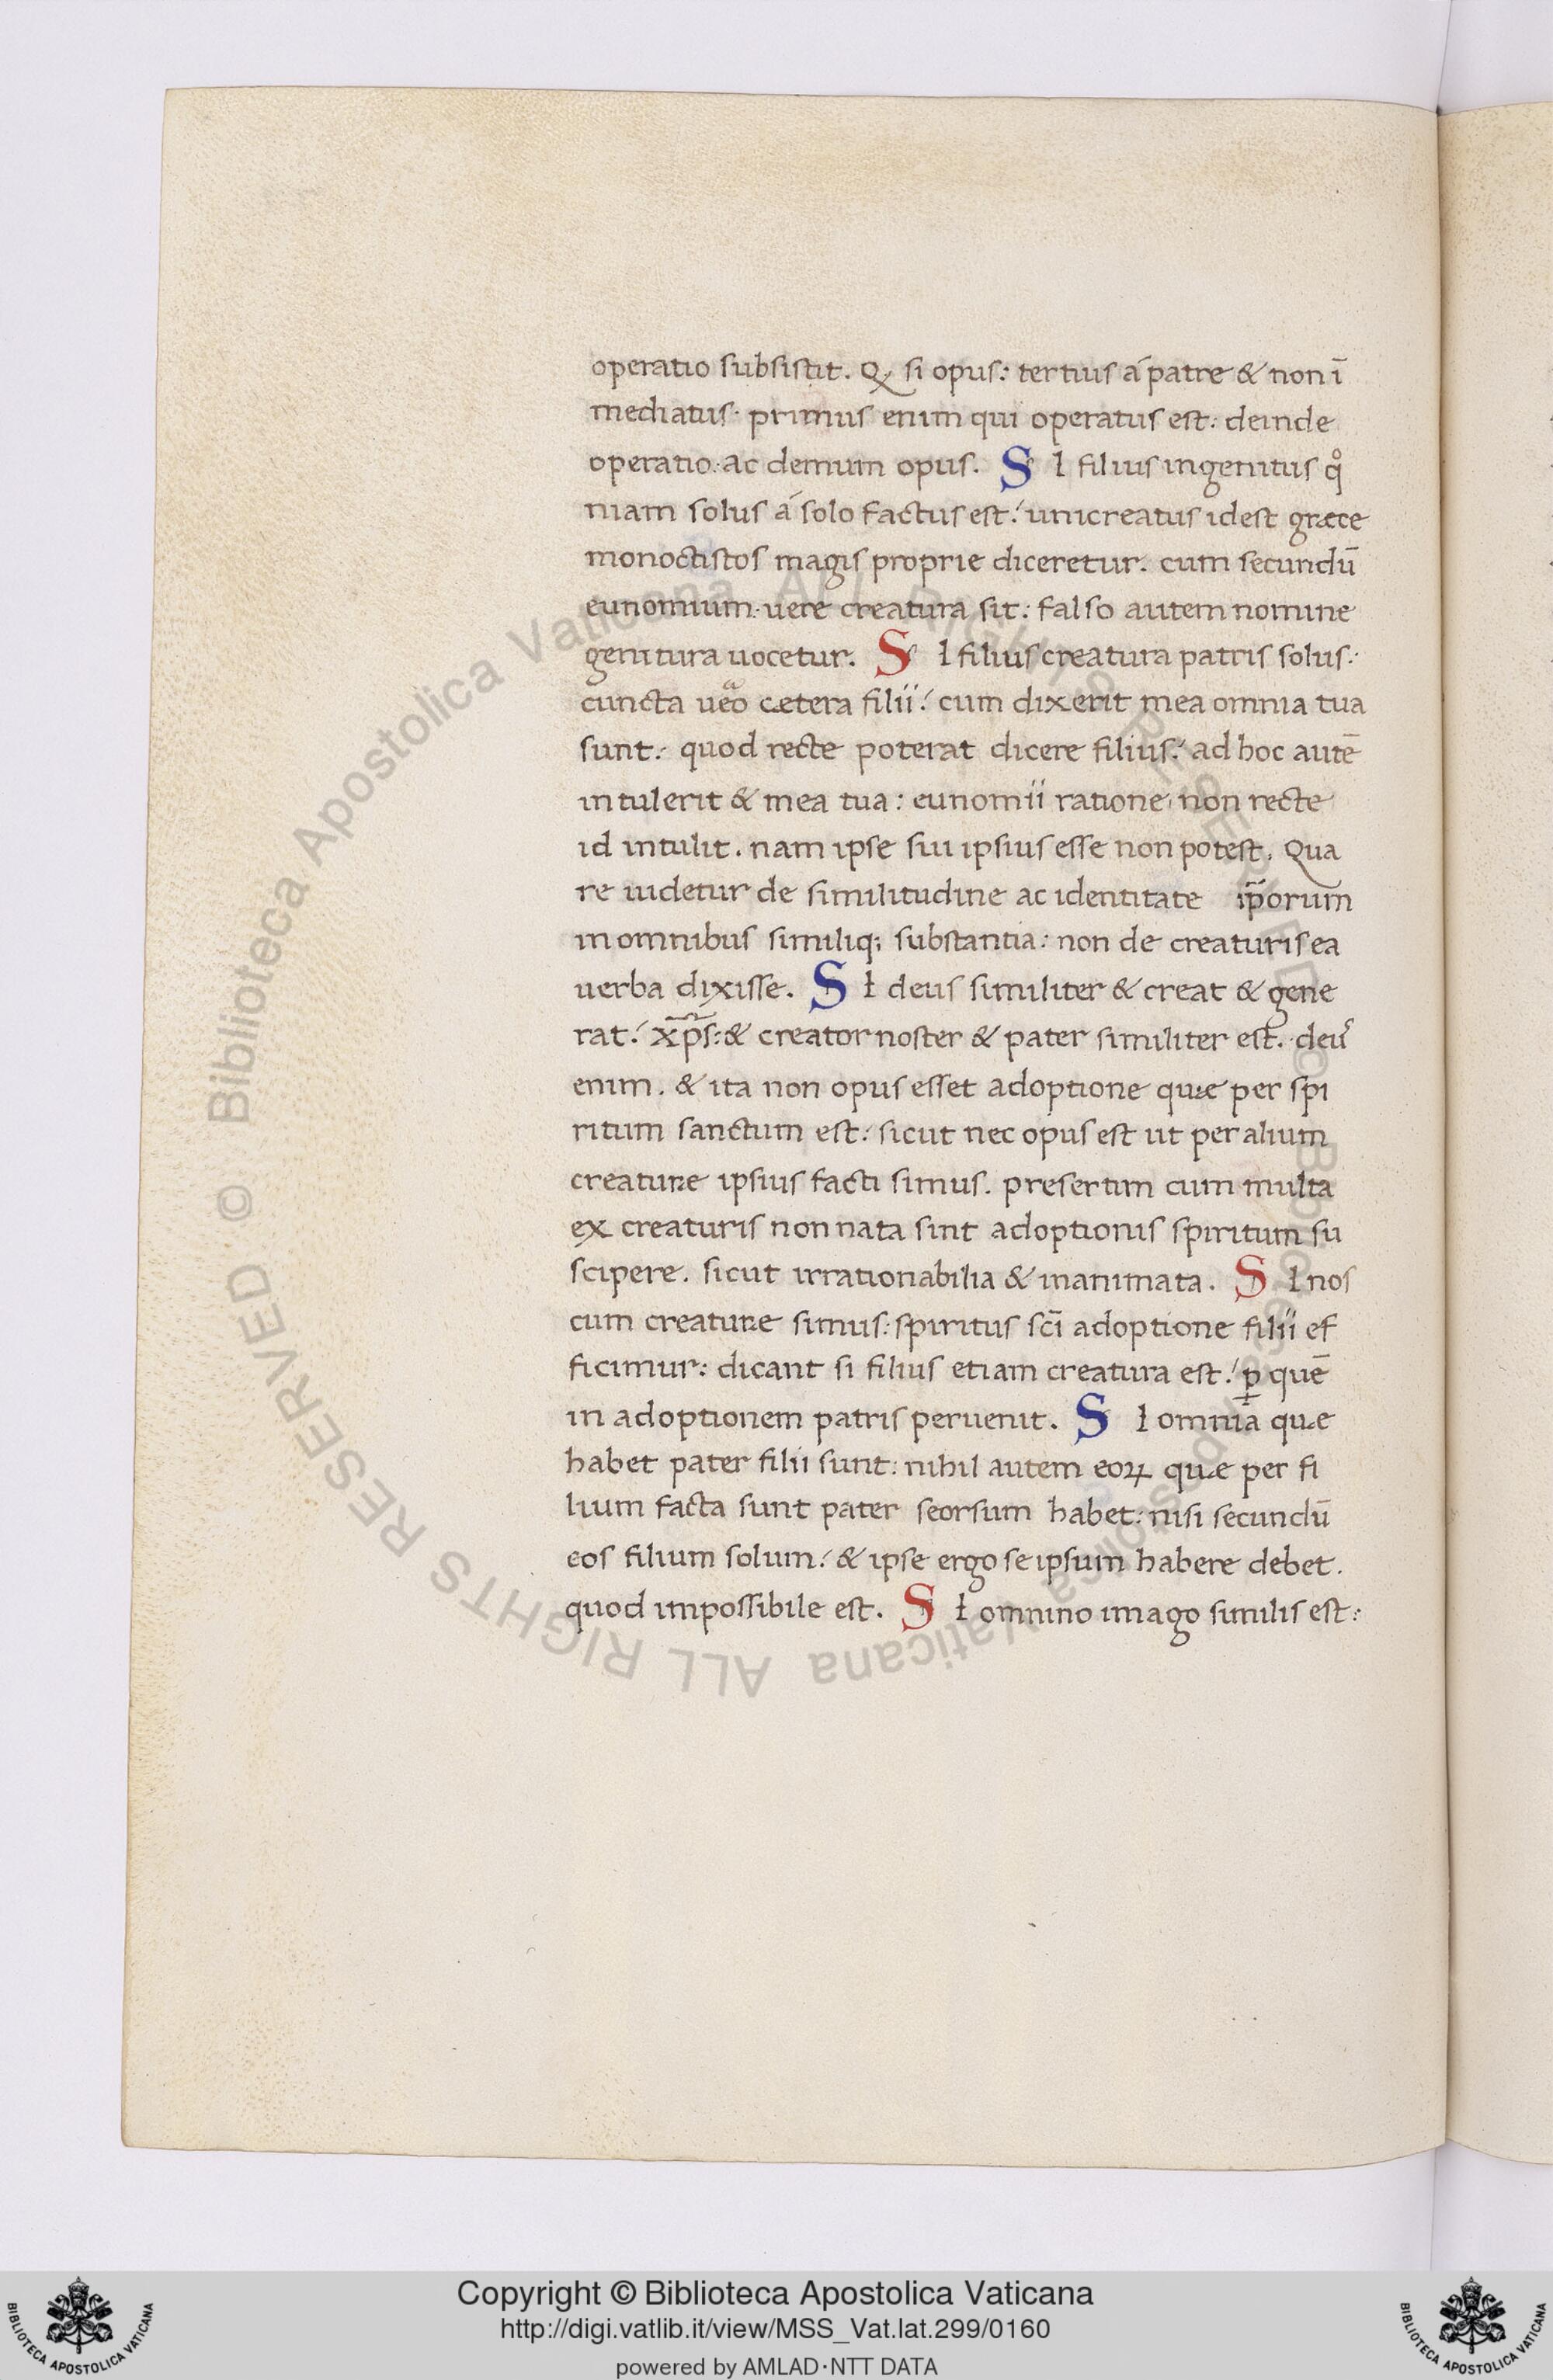 operatio subsistit. Q si opus: tertius á patre & non ī
mediatus. primus enim qui operatus est: deinde
operatio: ac demum opus. SI filius ingenitus qͦ
niam solus á solo factus est: unicreatus idest græce
monoctistos magis proprie diceretur. cum secundū
eunomium: uere creatura sit: falso autem nomine
genitura uocetur. SI filius creatura patris solus:
cuncta ueͣo cetera filii: cum dixerit mea omnia tua
sunt: quod recte poterat dicere filius: ad hoc autē
intulerit & mea tua: eunomii ratione non recte
id intulit. nam ipse sui ipsius esse non potest. Qua
re uidetur de similitudine ac identitate ip̄orum
in omnibus similiq; substantia: non de creaturis ea
uerba dixisse. SI deus similiter & creat & gene
rat: xp̄s: & creator noster & pater similiter est. deus
enim. & ita non opus esset adoptione quæ per spi
ritum sanctum est: sicut nec opus est ut per alium
creaturæ ipsius facti simus. presertim cum multa
ex creaturis non nata sint adoptionis spiritum su
scipere. sicut irrationabilia & inanimata. SI nos
cum creaturæ simus: spiritus scī adoptione filii ef
ficimur: dicant si filius etiam creatura est: ꝑ quē
in adoptionem patris peruenit. SI omnia quæ
habet pater filii sunt: nihil autem eoꝝ quæ per fi
lium facta sunt pater seorsum habet: nisi secundū
eos filium solum: & ipse ergo se ipsum habere debet.
quod impossibile est. SI omnino imago similis est:
© Biblioteca Apostolica Vaticana ALL RIGHTS RESERVED © Biblioteca Apostolica Vaticana ALL RIGHTS RESERVED
Copyright © Biblioteca Apostolica Vaticana
http://digi.vatlib.it/view/MSS_Vat.lat.299/0160
powered by AMLAD·NTT DATA
BIBLIOTECA APOSTOLICA VATICANA
BIBLIOTECA APOSTOLICA VATICANA